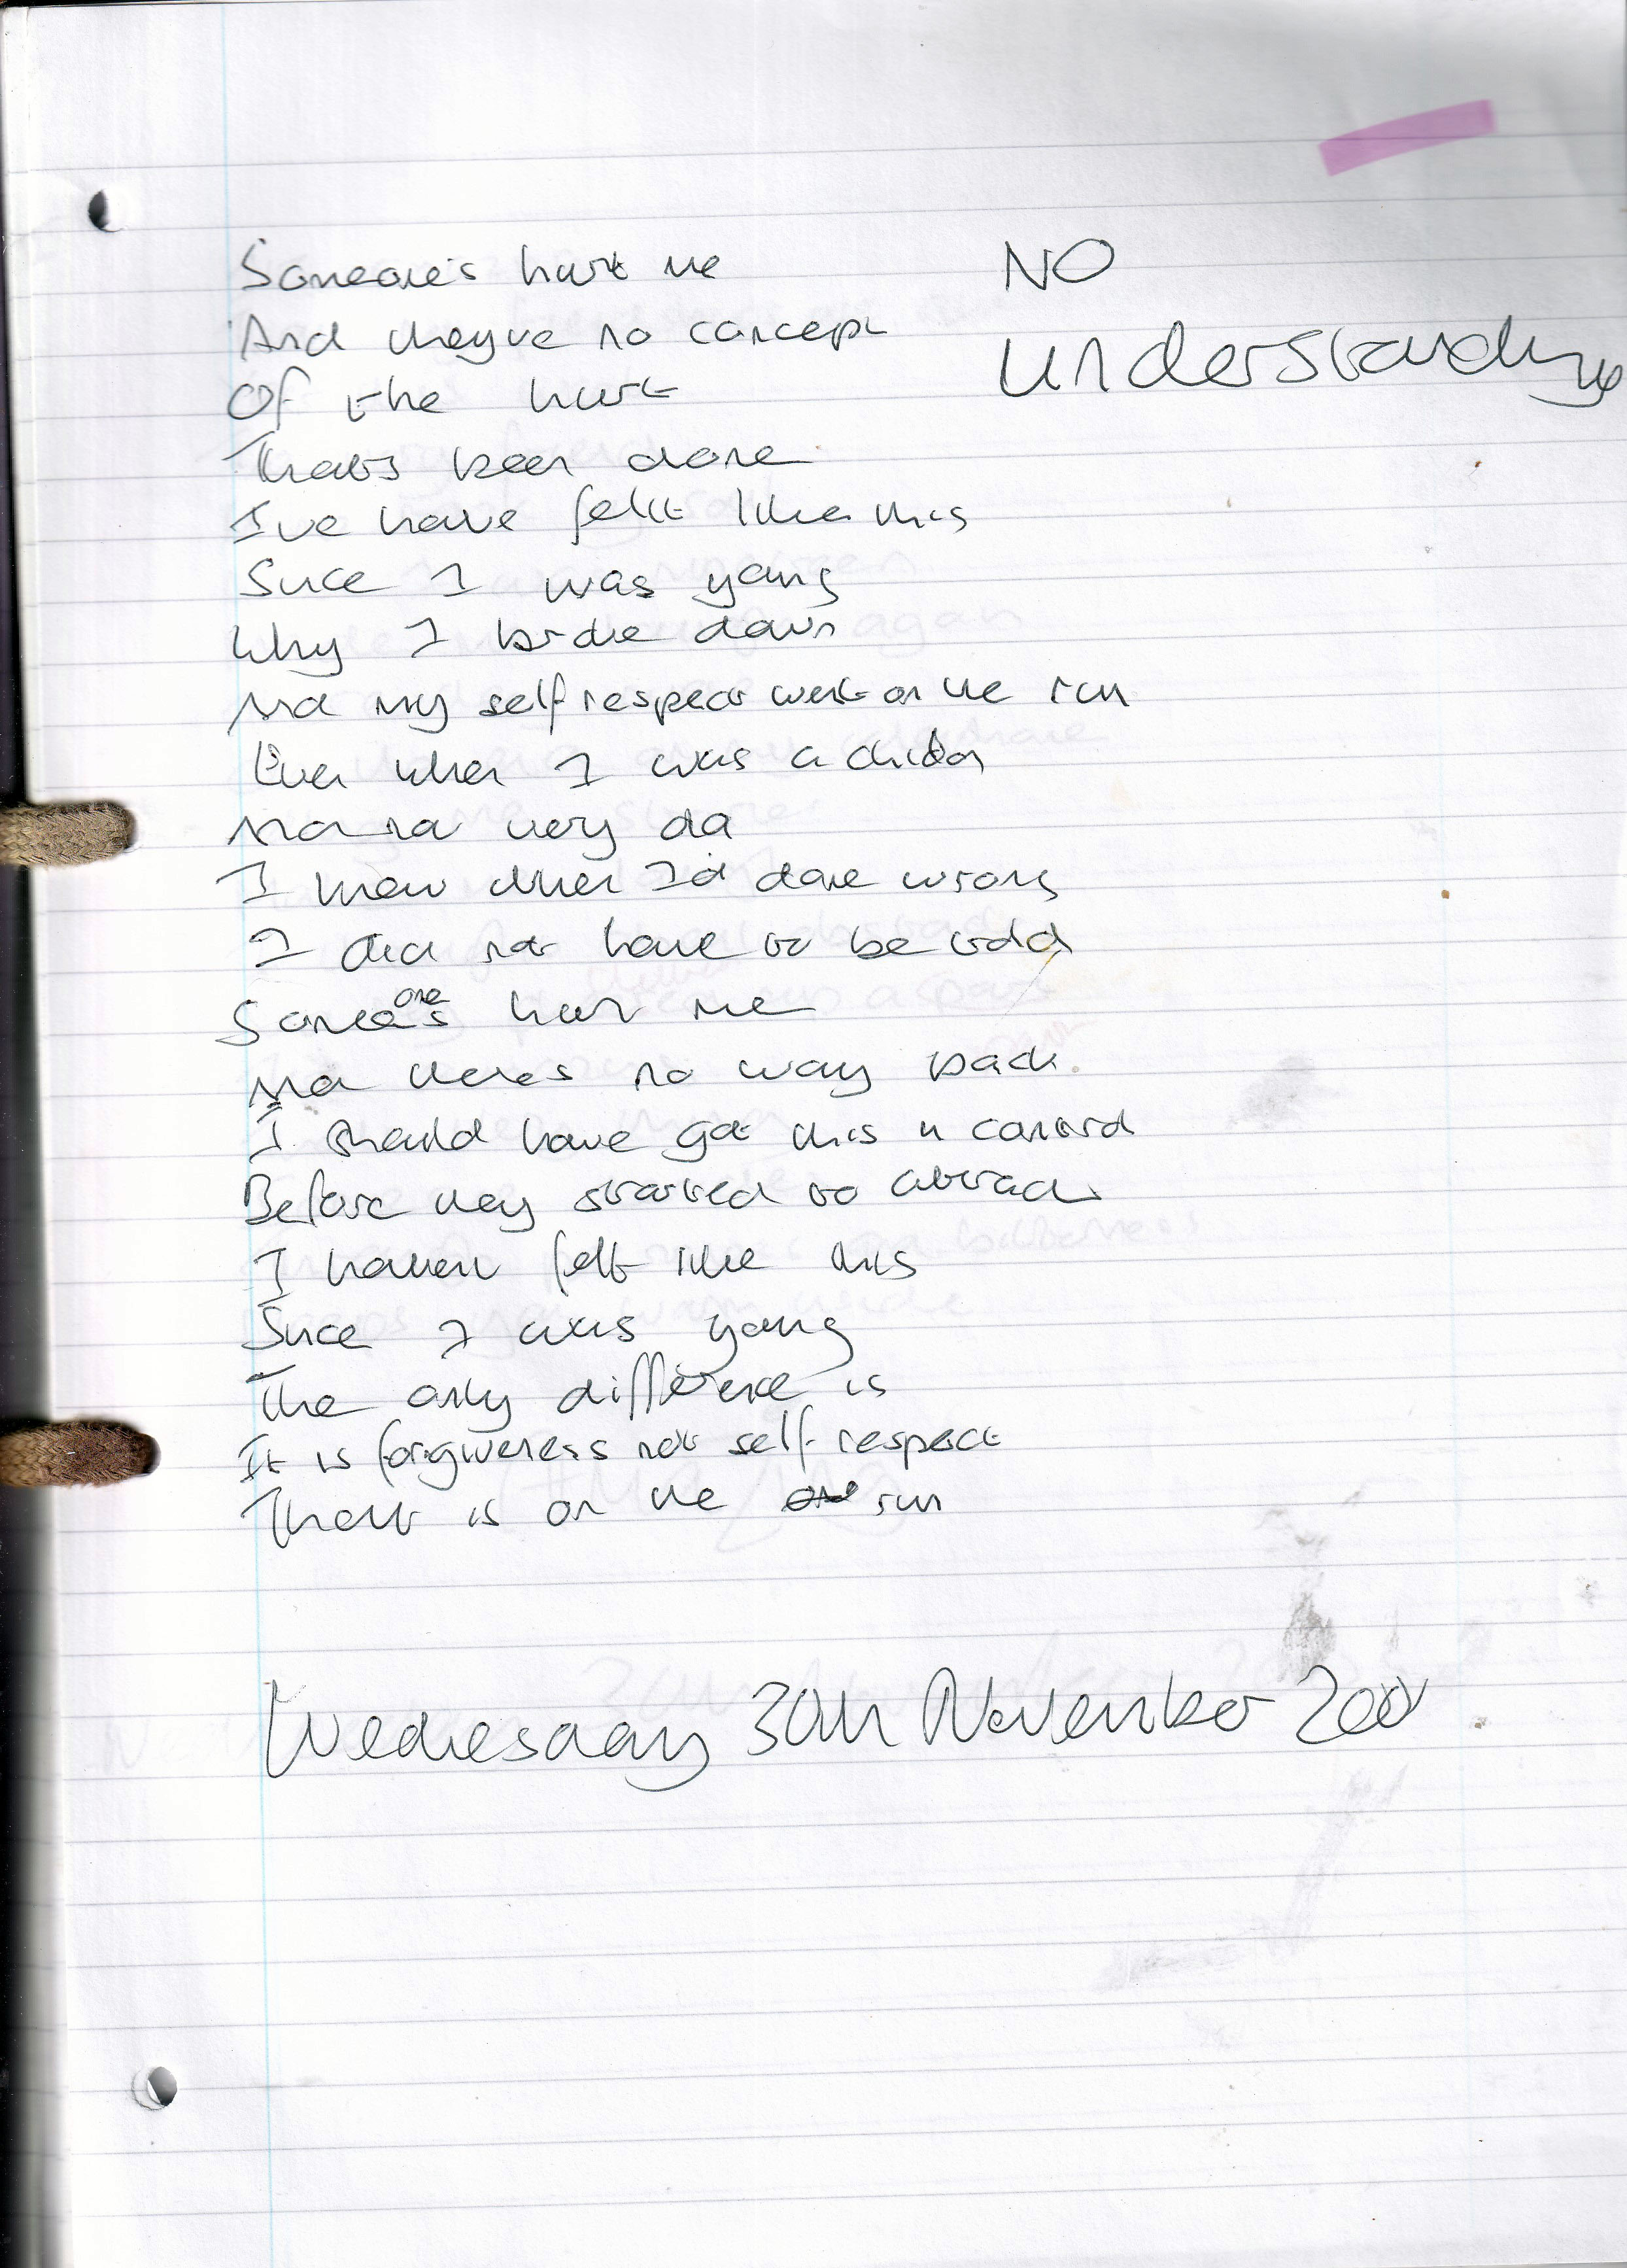 NO
understanding
Someone's hurt me
And theyve no concept
Of the hurt
Thats been done
I've have felt like this
Since I was young
Why I broke down
And my self respect went on the run
Even when I was a child
And not very old
I knew when I'd done wrong
I did not have to be told
Someone's hurt me
And theres no way back
I should have got this in control
Before they started to attack
I havent felt like this
Since I was young
The only difference is
It is forgiveness not self respect
That is on the run
Wednesday 30th November